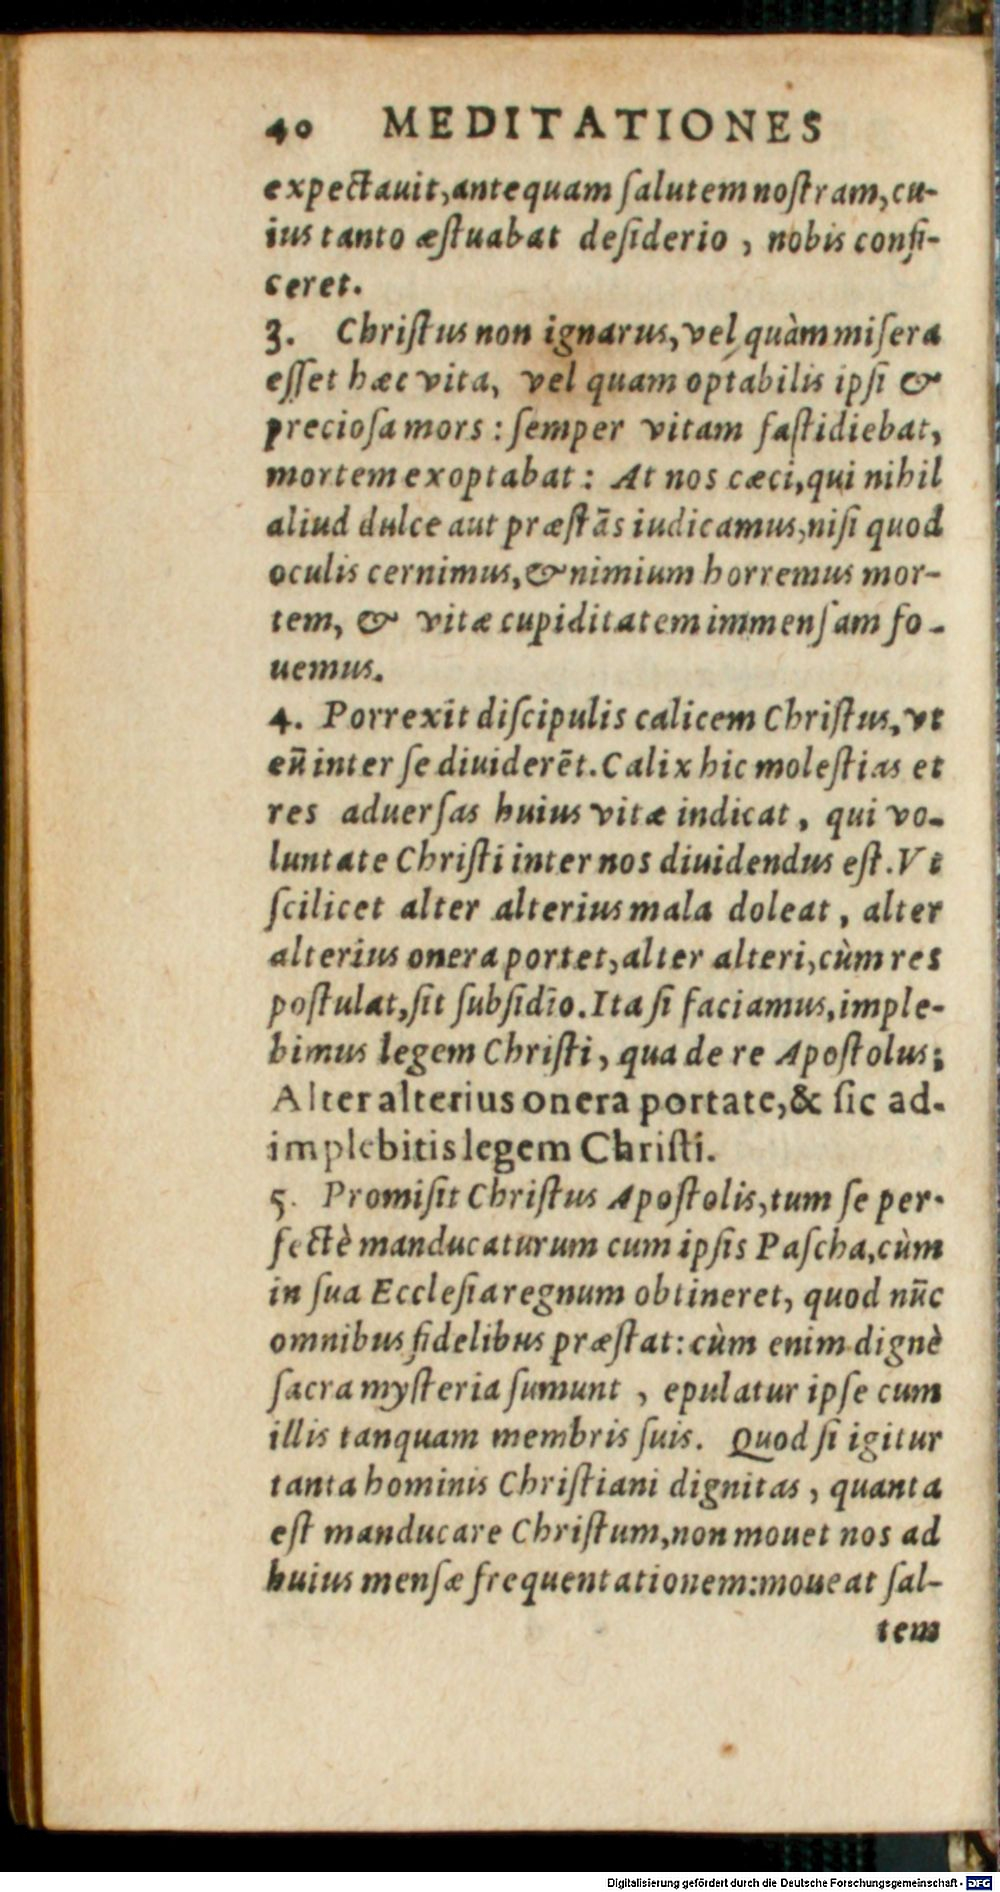 40 MEDITATIONES
expectauit, antequam ſalutem noſtram, cu-
ius tanto æſtuabat deſiderio , nobis confi-
ceret.
3. Chriſtus non ignarus, vel quàm miſera
eſſet hæc vita, vel quam optabilis ipſi &
precioſa mors : ſemper vitam faſtidiebat,
mortem exoptabat : At nos cæci, qui nihil
aliud dulce aut præſtãs iudicamus, niſi quod
oculis cernimus, & nimium horremus mor-
tem, & vitæ cupiditatem immenſam fo-
uemus.
4. Porrexit diſcipulis calicem Chriſtus, vt
eũ inter ſe diuiderēt. Calix hic moleſtias et
res aduerſas huius vitæ indicat, qui vo-
luntate Chriſti inter nos diuidendus eſt. Vt
ſcilicet alter alterius mala doleat, alter
alterius onera portet, alter alteri, cùm res
poſtulat, ſit ſubſidio. Ita ſi faciamus, imple-
bimus legem Chriſti, qua de re Apoſtolus;
Alter alterius onera portate, & ſic ad-
implebitis legem Chriſti.
5. Promiſit Chriſtus Apoſtolis, tum ſe per-
fectè manducaturum cum ipſis Paſcha, cùm
in ſua Eccleſia regnum obtineret, quod nũc
omnibus fidelibus præſtat: cùm enim dignè
ſacra myſteria ſumunt , epulatur ipſe cum
illis tanquam membris ſuis. Quod ſi igitur
tanta hominis Chriſtiani dignitas , quanta
eſt manducare Chriſtum, non mouet nos ad
huius menſæ frequentationem: moueat ſal-
tem
Digitalisierung gefördert durch die Deutsche Forschungsgemeinschaft - DFG